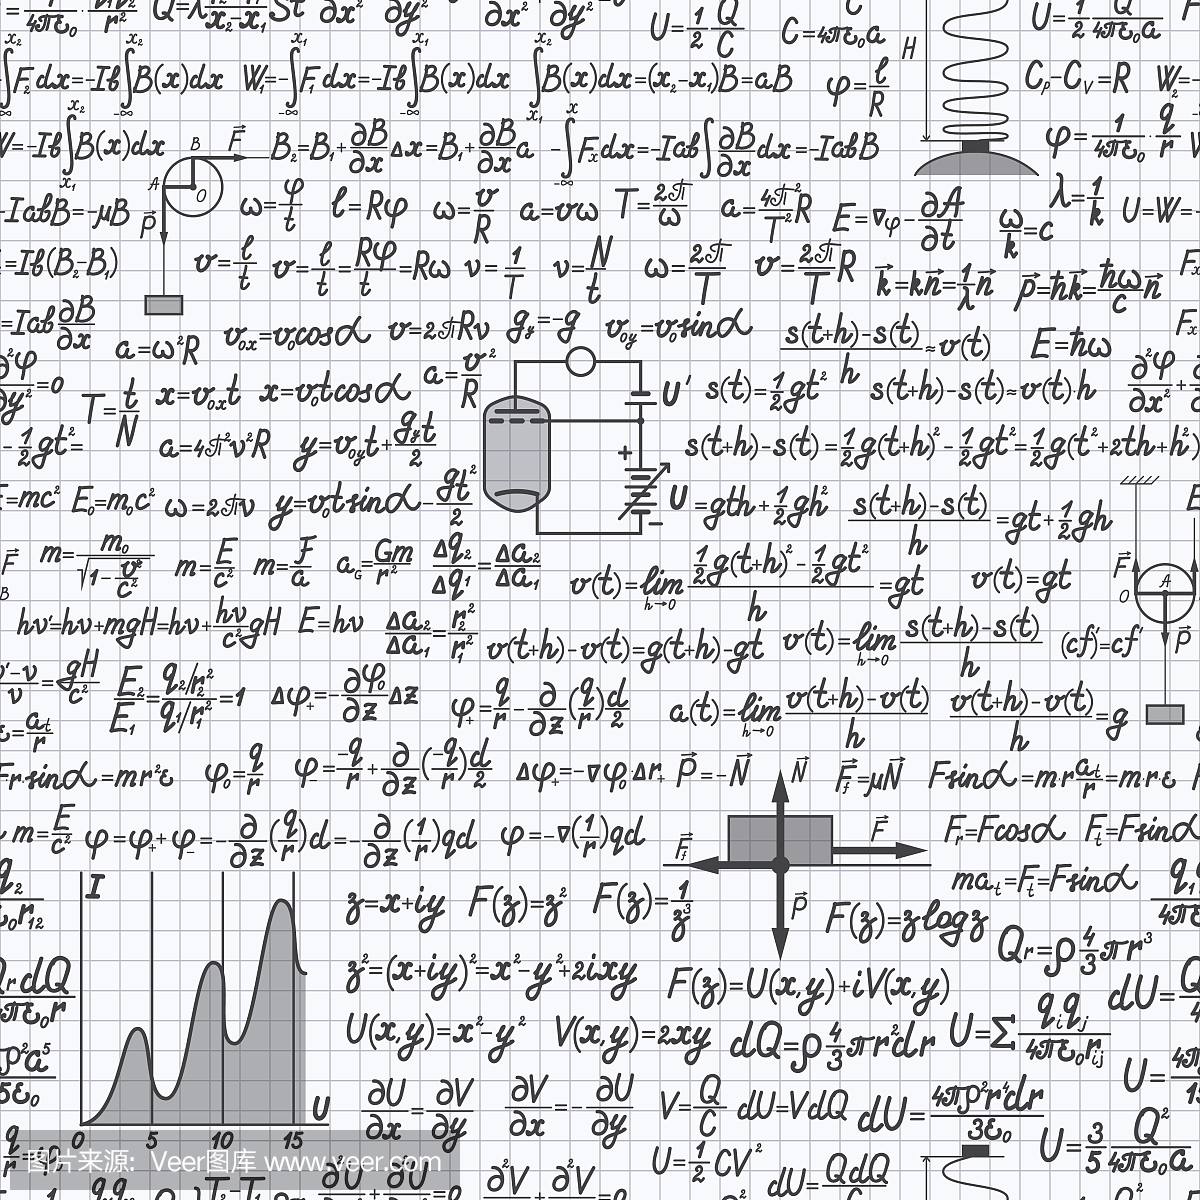 W₁=-∫F₁dx=-Iℓ∫B(x)dx
∫B(x)dx=(x₂-x₁)B=aB
φ=ℓ/R
C_P-C_V=R
H
B₂=B₁+∂B/∂x Δx=B₁+∂B/∂x a
-∫Fₓdx=-Iaℓ∫∂B/∂x dx=-IaℓB
-IaℓB=-μB
ω=φ/t
ℓ=Rφ
ω=v/R
a=vω
T=2π/ω
a=4π²/T² R
λ=1/k
ω/k=c
=Iℓ(B₂-B₁)
v=ℓ/t
v=ℓ/t=Rφ/t=Rω
ν=1/T
ν=N/t
ω=2π/T
v=2π/T R
k=kn=1/λ n
p=ħk=ħω/c n
=Iaℓ∂B/∂x
a=ω²R
v₀ₓ=v₀cosα
v=2πRν
g_y=-g
v₀y=v₀sinα
s(t+h)-s(t)/h≈v(t)
E=ħω
T=t/N
x=v₀ₓt
x=v₀tcosα
a=v²/R
U'
s(t)=1/2gt²
s(t+h)-s(t)≈v(t)·h
-1/2gt²=
a=4π²ν²R
y=v₀yt+g_yt/2
s(t+h)-s(t)=1/2g(t+h)²-1/2gt²=1/2g(t²+2th+h²)
E=mc²
E₀=m₀c²
ω=2πν
y=v₀tsinα-gt²/2
U
=gth+1/2gh²
s(t+h)-s(t)/h=gt+1/2gh
m=m₀/√1-v²/c²
m=E/c²
m=F/a
a_G=Gm/r²
Δq₂/Δq₁=Δa₂/Δa₁
v(t)=lim h→0 1/2g(t+h)²-1/2gt²/h=gt
v(t)=gt
hν'=hν+mgH=hν+hν/c²gH
E=hν
Δa₂/Δa₁=r₂²/r₁²
v(t+h)-v(t)=g(t+h)-gt
v(t)=lim h→0 s(t+h)-s(t)/h
(cf')=cf'
ν'-ν/ν=gH/c²
E₂/E₁=q₂/r₂²/q₁/r₁²=1
Δφ₊=-∂φ₀/∂z Δz
φ₊=q/r-∂/∂z(q/r)d/2
a(t)=lim h→0 v(t+h)-v(t)/h
v(t+h)-v(t)/h=g
Fr·sinα=mr²ε
φ₀=q/r
φ₋=-q/r+∂/∂z(-q/r)d/2
Δφ₊=-∇φ₀·Δr₊
P=-N
N
F_f=μN
Fsinα=m·r a_t/r=m·r·ε
m=E/c²
φ=φ₊+φ₋=-∂/∂z(q/r)d=-∂/∂z(1/r)qd
φ=-∇(1/r)qd
F_f
F
P
F_r=Fcosα
F_t=Fsinα
ma_t=F_t=Fsinα
I
z=x+iy
F(z)=z²
F(z)=1/z³
F(z)=zlogz
Q_r=ρ4/3πr³
z²=(x+iy)²=x²-y²+2ixy
F(z)=U(x,y)+iV(x,y)
U(x,y)=x²-y²
V(x,y)=2xy
dQ=ρ4/3πr²dr
U=Σq_iq_j/4πε₀r_ij
∂U/∂x=∂V/∂y
∂V/∂x=-∂U/∂y
V=Q/C
dU=VdQ
dU=4πρ²r⁴dr/3ε₀
U
0 5 10 15
U=1/2CV²
dU=QdQ/C
U=3/5 Q²/4πε₀a
图片来源: Veer图库 www.veer.com